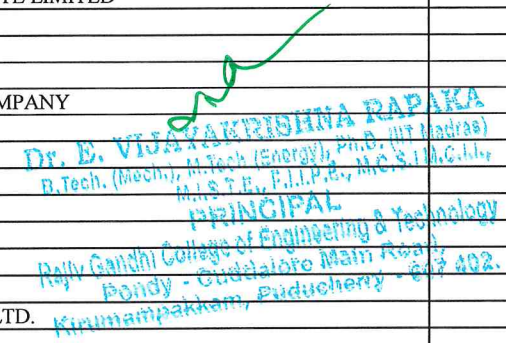 LIMITED
MPANY
Dr. E. VIJAYAKRISHNA RAPAKA
B.Tech. (Mech.), M.Tech (Energy), Ph.D. (IIT Madras)
M.I.S.T.E., F.I.I.P.E., M.C.S.I M.C.I.I.,
PRINCIPAL
Rajiv Gandhi College of Engineering & Technology
Pondy - Cuddalore Main Road,
Kirumampakkam, Puducherry - 607 402.
LTD.